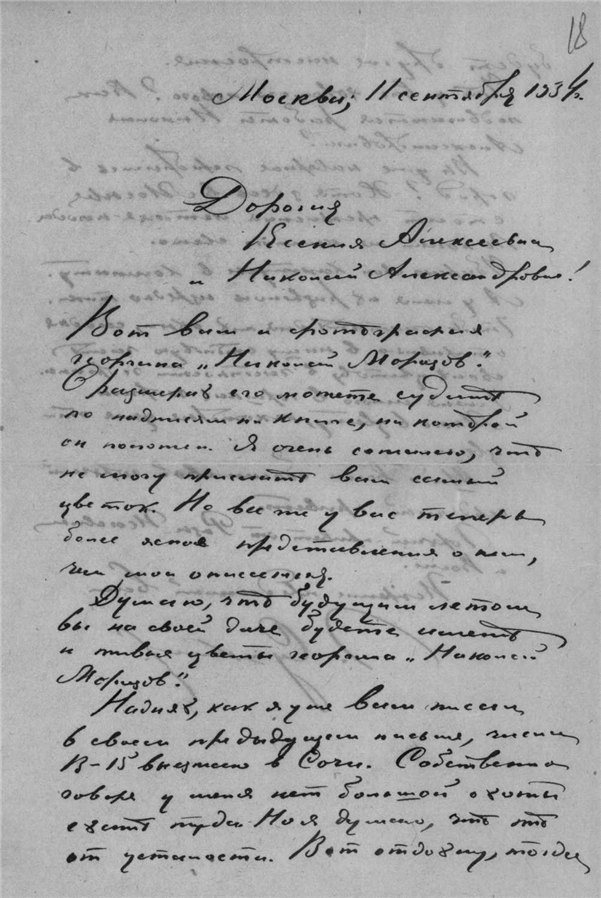 18
Москва, 11 сентября 1934 г.
Дорогия
Ксения Алексеевна
и Николай Александрович!
Вот вам и фотография
георгина „Николай Морозов".
О размерах его можете судить
по надписям на книге, на которой
он положен. Я очень сожалею, что
не могу прислать вам самый
цветок. Но все же у вас теперь
более ясное представления о нем,
чем мои описания.
Думаю, что будущим летом
вы на своей даче будете иметь
и живыя цветы георгина „Николай
Морозов".
На днях, как я уже вам писал
в своем предыдущем письме, числа
13-15 выезжаю в Сочи. Собственно
говоря у меня нет большой охоты
ехать туда. Но я думаю, что это
от усталости. Вот отдохну, тогда